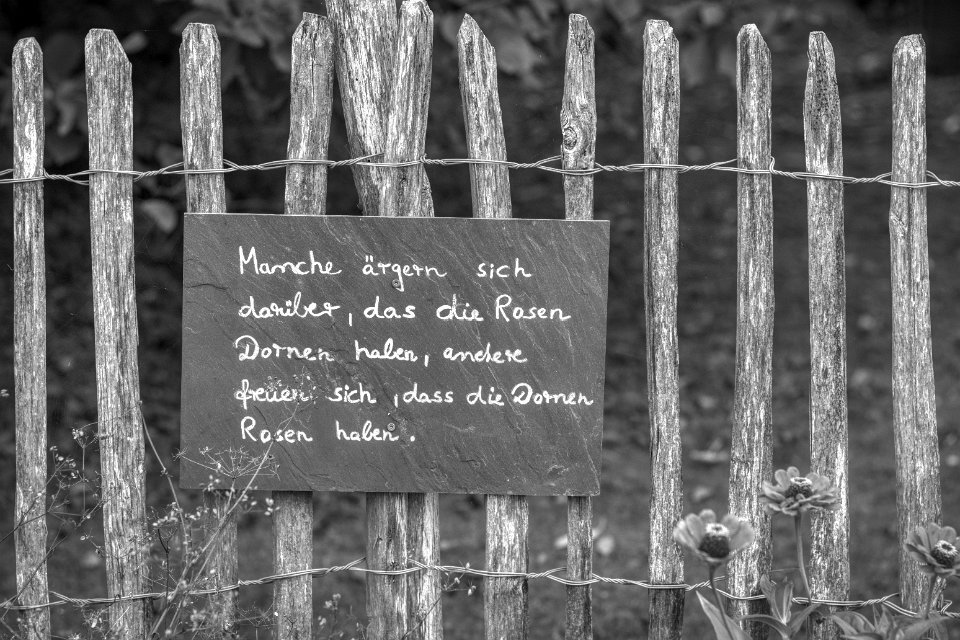 Manche ärgern sich
darüber, das die Rosen
Dornen haben, andere
freuen sich , dass die Dornen
Rosen haben.